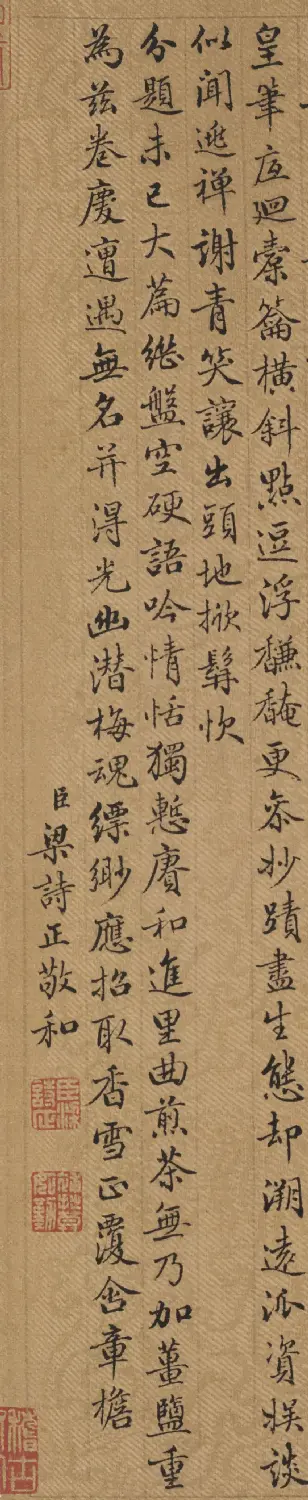 皇筆底迴橐籥橫斜點逗浮馦馣更參妙蹟盡生態却溯遠派資娛談
似聞逃禪謝青笑讓出頭地掀髯忺
分題未已大篇繼盤空硬語吟情恬獨慙賡和進里曲煎茶無乃加薑鹽重
為茲卷慶遭遇無名并得光幽潛梅魂縹緲應招取香雪正覆含章檐
臣梁詩正敬和
稽古